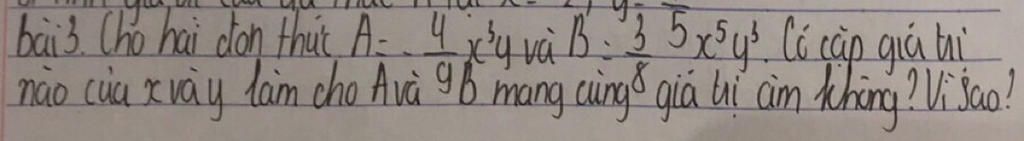 bài 3. Cho hai đơn thức A = -4/9 x³y và B = 3/8 x⁵y³. Có cặp giá trị
nào của x và y làm cho A và B mang cùng giá trị âm không? Vì sao?